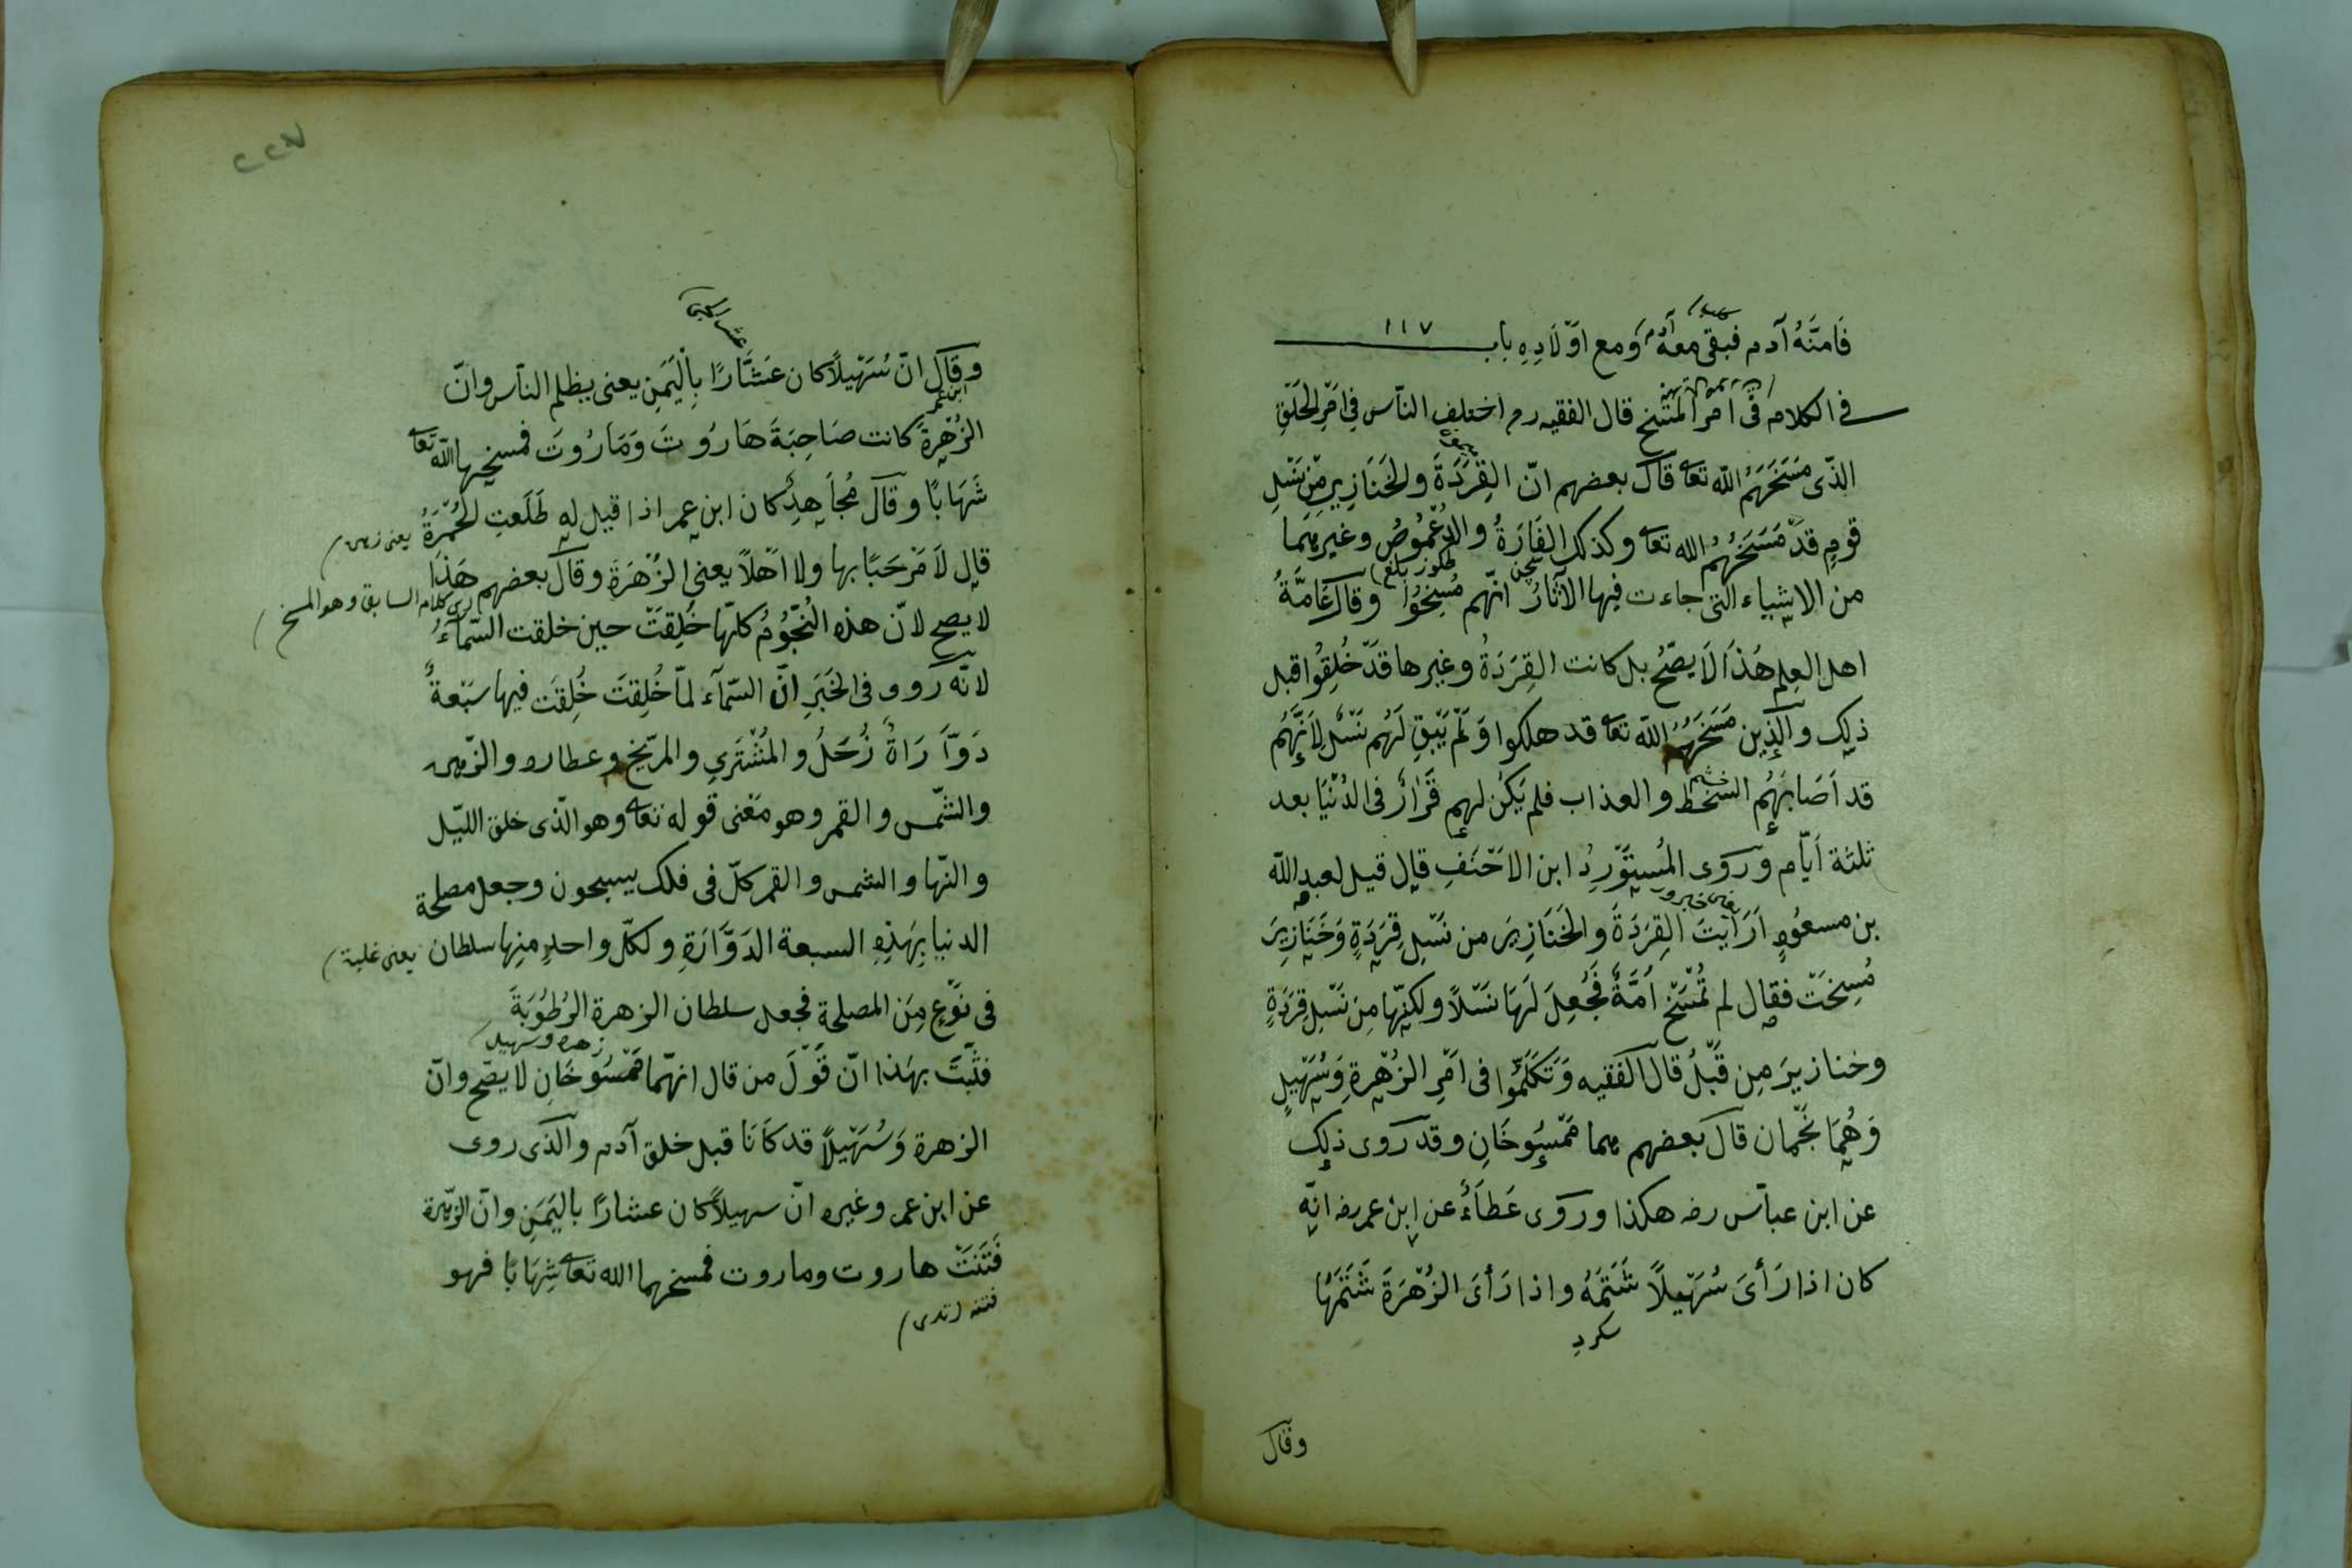 فَامَنَهُ آدم فبقى معهُ ومع اَوْلَادِهِ باب ١١٧
فى الكلام فى امر المَسْخِ قال الفقيه رح اختلف الناس فى اَمْرِ الخَلْقِ
الذى مَسَخَهُمُ الله تعا قال بعضهم انّ القِرَدَةَ والخَنَازِيرَ مِنْ نَسْلِ
قومٍ قَدْ مَسَخَهُمُ الله تعا وكذلك الفَارَةُ والدُعْمُوصُ وغيرهما
من الاشياء التى جاءت فيها الآثَارُ انّهم مُسِخُوا وقال عَامَّةُ
اهل العِلم هَذَا لَا يَصِحُّ بل كانت القِرَدَةُ وغيرها قَدْ خُلِقُوا قبل
ذلك والذين مَسَخَهُمُ الله تعا قد هلكوا وَلَمْ يَبْقِ لَهُم نَسْلٌ لِاَنَّهُمْ
قد اَصَابَهُمُ السُخْط والعذاب فلم يَكُن لهم قَرَارٌ فى الدُنْيَا بعد
ثلثة اَيّام ورَوَى المُسْتَوْرِدُ ابن الاَحْنَفِ قال قيل لعبد الله
بن مسعُودٍ اَرَاَيتَ القِرَدَةَ والخَنَازِيرَ من نَسْلِ قِرَدَةٍ وَخَنَازِيرَ
مُسِخَتْ فقال لم تُمْسَخْ اُمَّةٌ فَجُعِلَ لَهَا نَسْلًا ولكنّها مِن نَسْلِ قِرَدَةٍ
وخنازيرَ مِن قَبْلُ قال الفقيه وَتَكَلَّمُوا فى اَمْرِ الزُهْرَةِ وَسُهَيْلٍ
وَهُمَا نَجْمَان قال بعضهم هما مَمْسُوخَانِ وقد رَوى ذلك
عن ابن عبّاس رضه هكذا ورَوَى عَطَاءُ عن ابن عمر رضه انّه
كان اذا رَأَىَ سُهَيْلًا شَتَمَهُ واذا رَأَىَ الزُهْرَةَ شَتَمَهَا
وقال
٢٢٧
وقال انّ سُهَيْلًا كان عَشَّارًا بِاْليَمَنِ يعنى يظلم الناس وانّ
ابن عمر
الزُهْرَةَ كانت صَاحِبَةَ هَارُوتَ وَمَارُوتَ فمسخها الله تعا
شَهَابًا وقال مُجَاهِدٌ كان ابن عمر اذا قيل له طَلَعتِ الحُمْرَةُ
قال لَا مَرْحَبًا بها ولا اَهْلًا يعنى الزُهَرَةَ وقال بعضهم هَذَا
كلام السابق وهو المسخ
لا يصح لانّ هذه النُجُومُ كلّها خُلِقَتْ حين خلقت السّمآءُ
لانّه روى فى الخَبَرِ انّ السّمآء لمّا خُلِقَتَ خُلِقَت فيها سَبْعةٌ
دَوَّارَاةٌ زُحَلُ والمُشْتَرِي والمرّيخ وعطارد والزّهره
والشّمس والقمر وهو مَعْنى قوله تعا وهو الّذى خلق اللّيل
والنّهار والشمس والقمر كلّ فى فلك يسبحون وجعل مصلحة
الدنيا بِهَذِهِ السبعة الدَوَّارَةِ ولكلّ واحدٍ مِنها سلطان
يعنى غلبة
فى نَوْعٍ مِنَ المصلحة فجعل سلطان الزهرة الرُطُوبَةَ
زهره وسهيل
فثَبَتَ بهَذا انّ قَوْلَ من قال انهما مَمْسُوخَانِ لا يصّح وانّ
الزهرة وَسُهَيْلًا قد كَانَا قبل خلق آدم والّذى روى
عن ابن عمر وغيره انّ سهيلًا كان عشارًا باليَمَنِ وانّ الزّهرة
فَتَنَتْ هاروت وماروت فمسخهما الله تعا شِهَابًا فهو